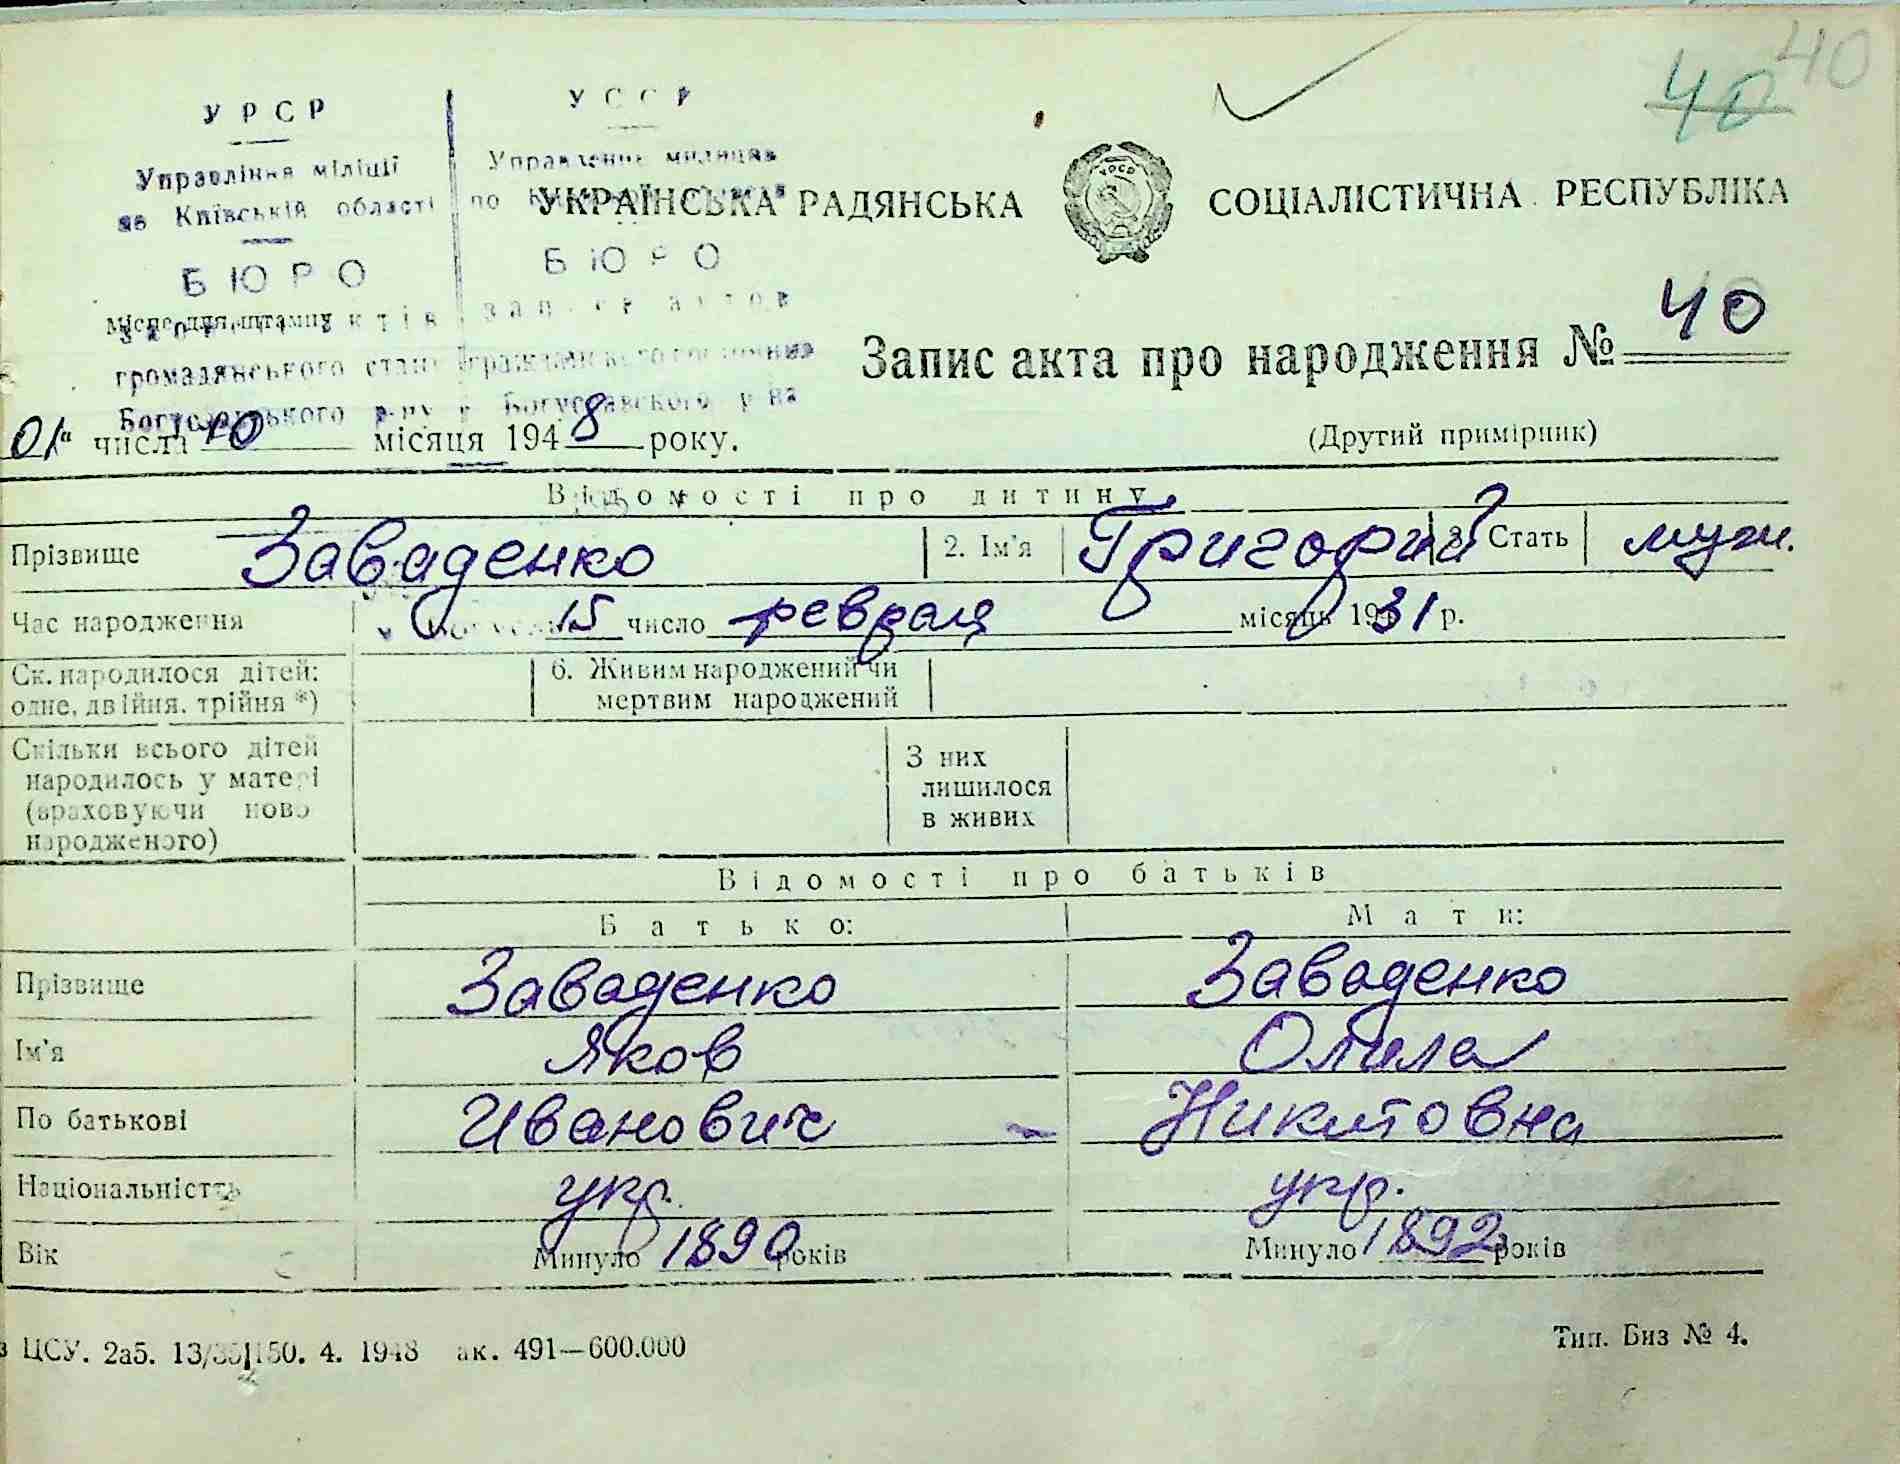 40
40
УРСР
УССР
Управління міліції
Управление милиции
по Київській області
по
УКРАЇНСЬКА РАДЯНСЬКА СОЦІАЛІСТИЧНА РЕСПУБЛІКА
БЮРО
БЮРО
Місце для штампу
записи актов
громадянського стану
гражданского состояния
Запис акта про народження № 40
Богуславського р-ну
Богуславского р-на
01" числа 10 місяця 1948 року.
(Другий примірник)
Відомості про дитину
Прізвище Заваденко 2. Ім'я Григорий 3. Стать муж.
Час народження 15 число февраля місяць 1931 р.
Ск. народилося дітей: одне, двійня, трійня *)
6. Живим народжений чи мертвим народжений
Скільки всього дітей народилось у матері (враховуючи ново народженого)
З них лишилося в живих
Відомості про батьків
Батько: Мати:
Прізвище Заваденко Заваденко
Ім'я Яков
По батькові Иванович Никитовна
Національність укр. укр.
Вік Минуло 1890 років Минуло 1892 років
ЦСУ. 2а5. 4. 1948 ак. 491—600.000
Тип. Биз № 4.